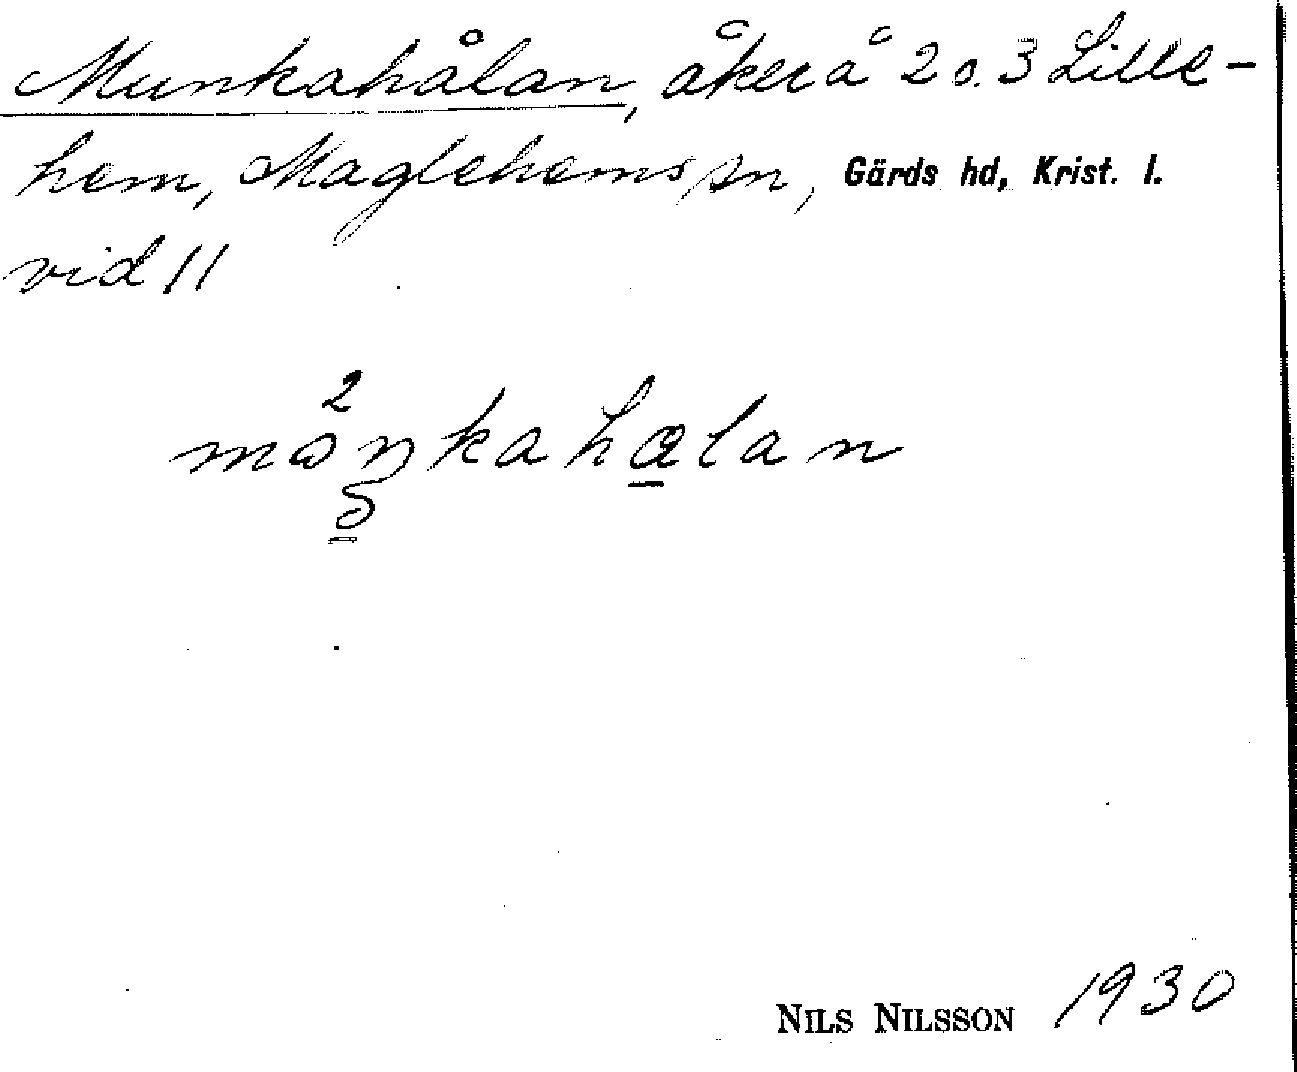 Munkahålan, åker å 2 o. 3 Lille-
hem, Maglehems sn, Gärds hd, Krist. l.
vid 11
2
månkahalan
NILS NILSSON 1930